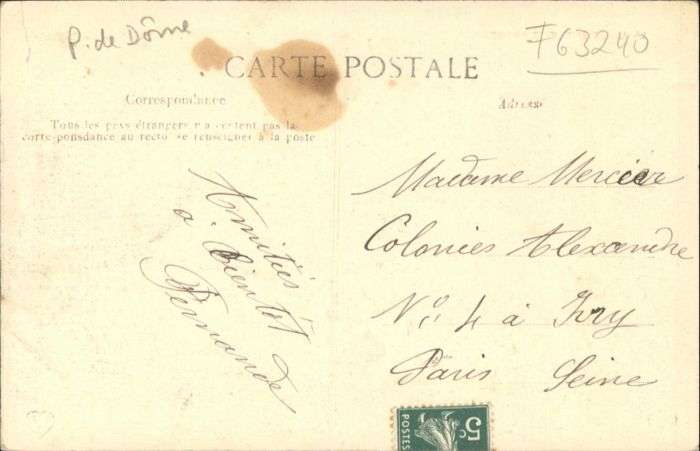 P. de Dôme
F63240
CARTE POSTALE
Correspondance
Adresse
Tous les pays étrangers n'acceptent pas la
corre-ponsdance au recto se renseigner à la poste
Amitiés
à Bientôt
Fernande
Madame Mercier
Colonies Alexandre
No 4 à Ivry
Paris Seine
5c
POSTES